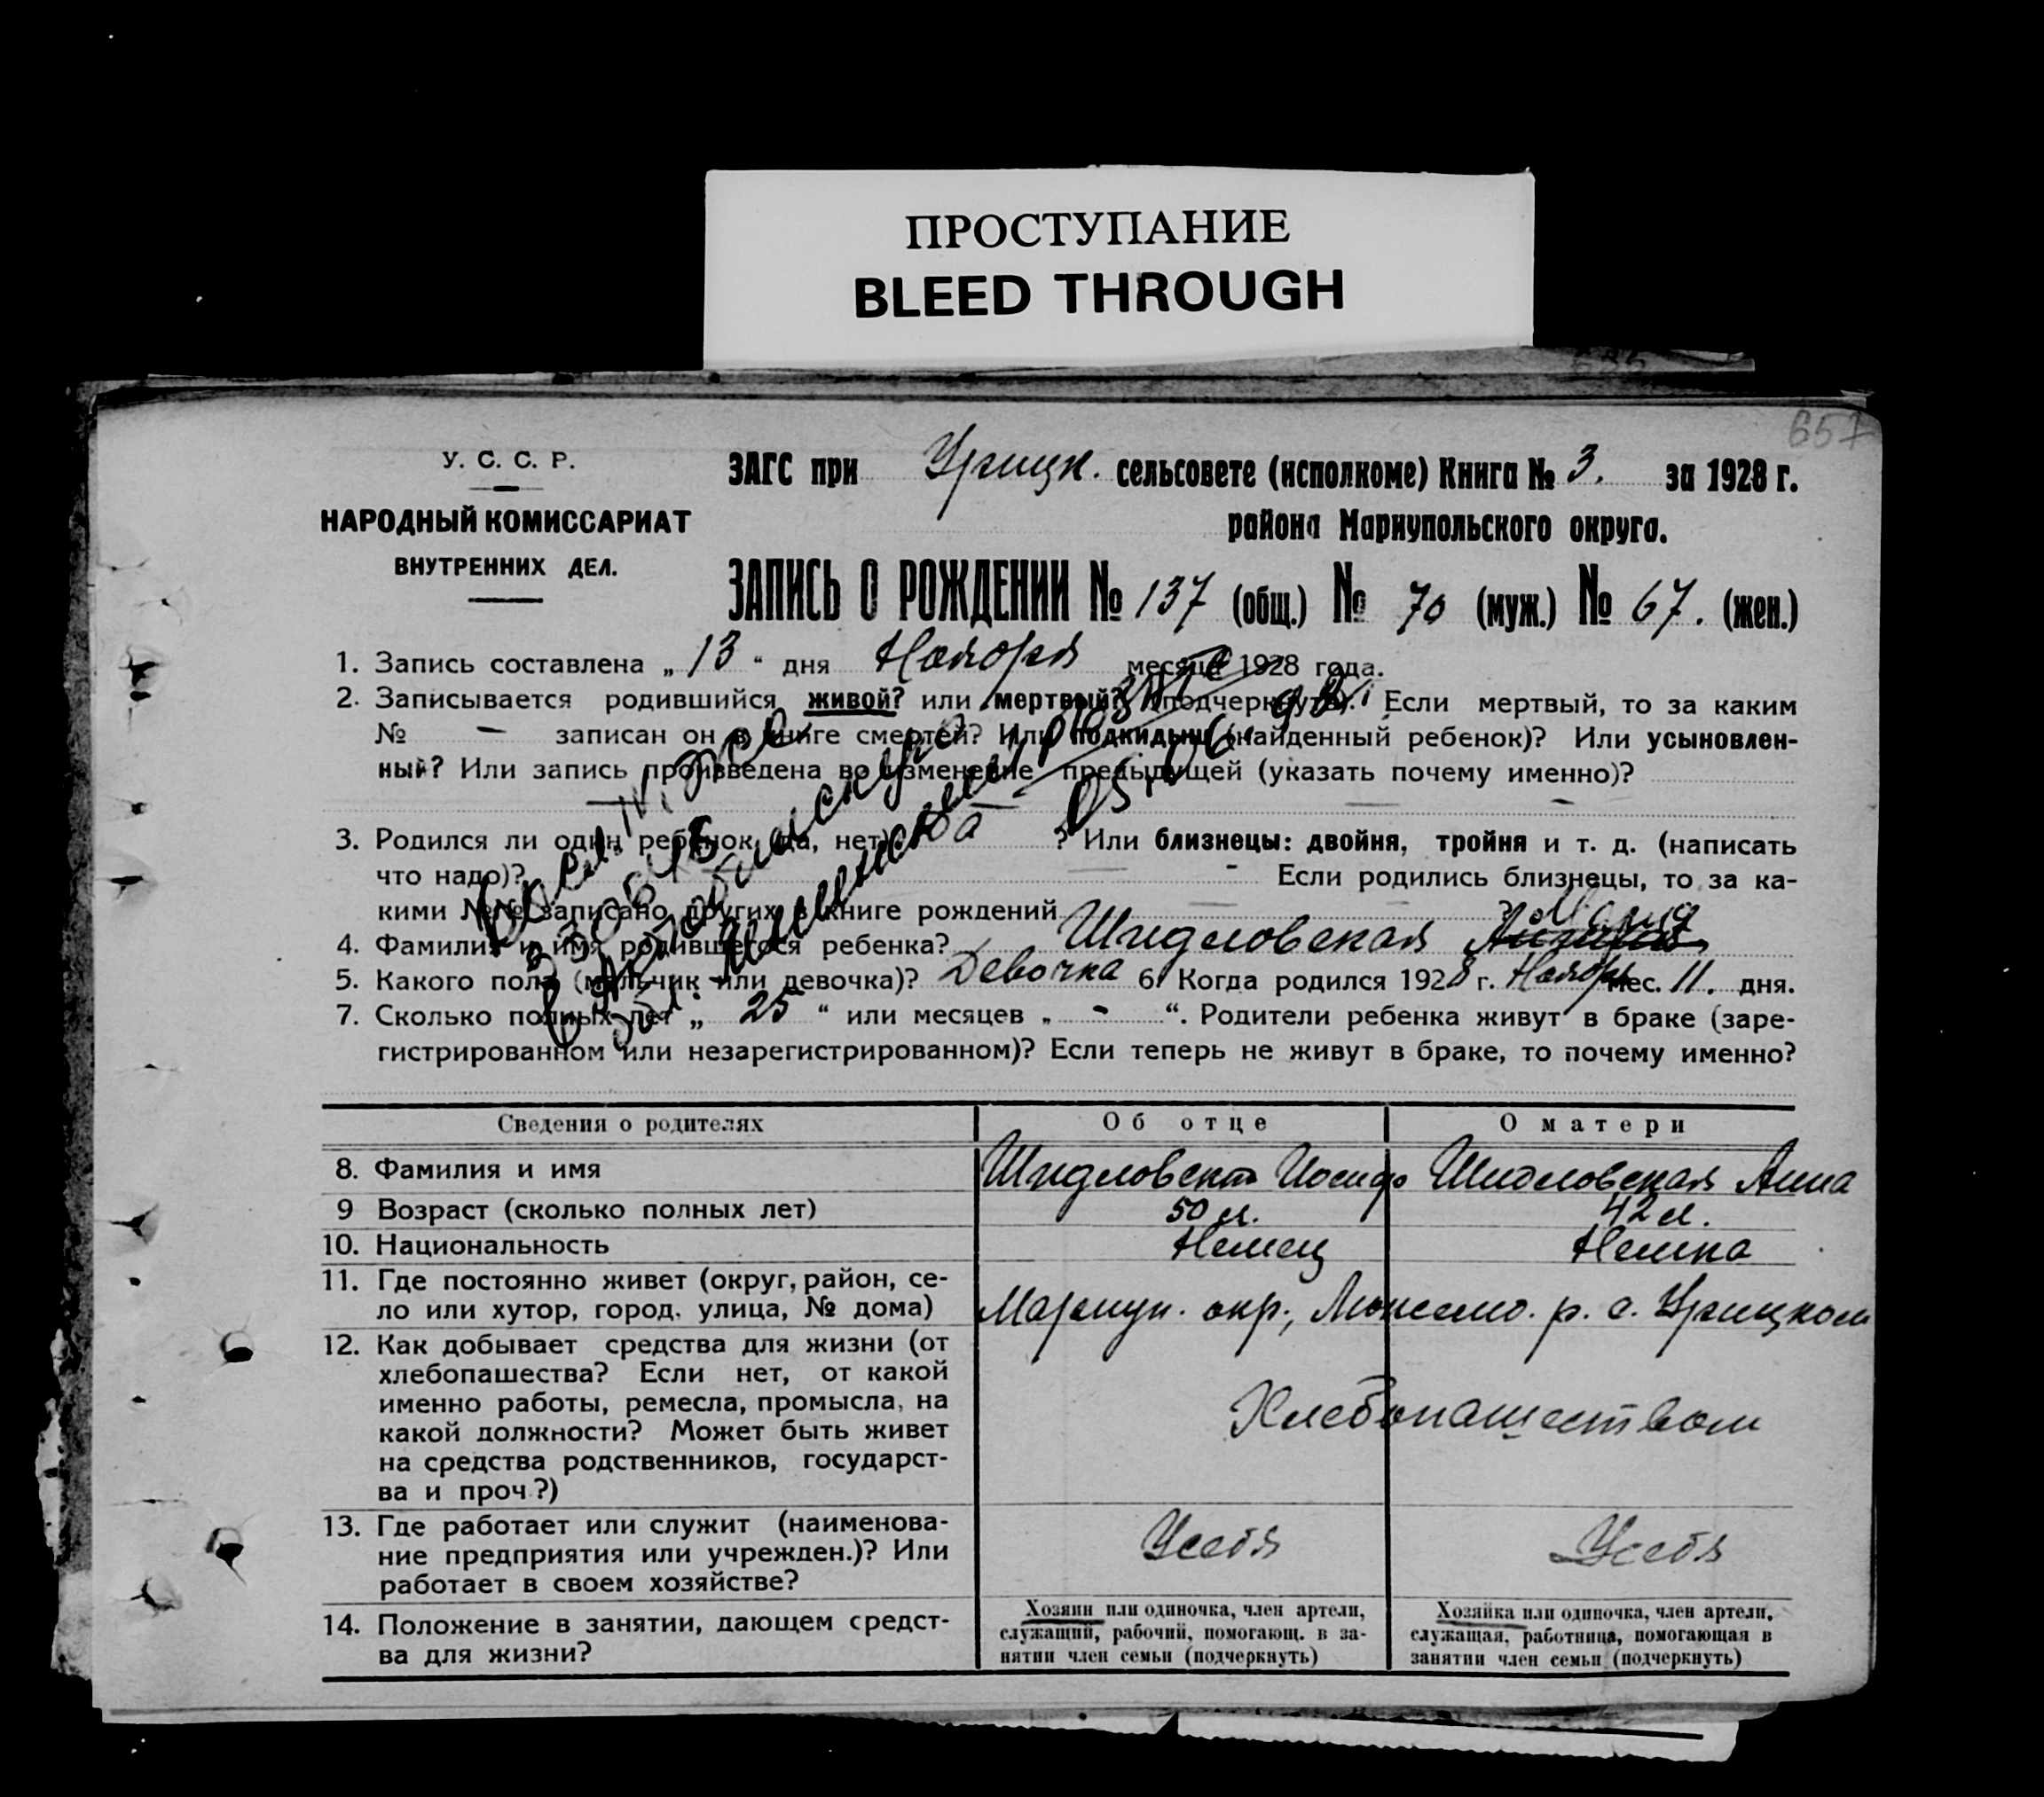 ПРОСТУПАНИЕ
BLEED THROUGH
657
У. С. С. Р.
НАРОДНЫЙ КОМИССАРИАТ
ВНУТРЕННИХ ДЕЛ.
ЗАГС при Урицк. сельсовете (исполкоме) Книга № 3. за 1928 г.
района Мариупольского округа.
ЗАПИСЬ О РОЖДЕНИИ № 137 (общ.) № 70 (муж.) № 67. (жен.)
1. Запись составлена „ 13 “ дня Ноября месяца 1928 года.
2. Записывается родившийся живой? или мертвый? (подчеркнуть). Если мертвый, то за каким
№ — записан он в книге смертей? Или подкидыш (найденный ребенок)? Или усыновлен-
ный? Или запись произведена во изменение предыдущей (указать почему именно)?
3. Родился ли один ребенок (да, нет) да ? Или близнецы: двойня, тройня и т. д. (написать
что надо)? - Если родились близнецы, то за ка-
кими №№ записано других в книге рождений ?
4. Фамилия и имя родившегося ребенка? Шидловская Мария
5. Какого пола (мальчик или девочка)? Девочка 6. Когда родился 1928 г. Ноябрь мес. 11. дня.
7. Сколько полных лет „ 25 “ или месяцев „ - “. Родители ребенка живут в браке (заре-
гистрированном или незарегистрированном)? Если теперь не живут в браке, то почему именно?
Сведения о родителях Об отце О матери
8. Фамилия и имя Шидловский Иосиф Шидловская Анна
9 Возраст (сколько полных лет) 50 л. 42 л.
10. Национальность Немец Немка
11. Где постоянно живет (округ, район, се-
ло или хутор, город, улица, № дома) Мариуп. окр., р. с. Урицком
12. Как добывает средства для жизни (от
хлебопашества? Если нет, от какой
именно работы, ремесла, промысла, на
какой должности? Может быть живет
на средства родственников, государст-
ва и проч.?) Хлебопашеством
13. Где работает или служит (наименова-
ние предприятия или учрежден.)? Или
работает в своем хозяйстве? У себя У себя
14. Положение в занятии, дающем средст-
ва для жизни?
Хозяин или одиночка, член артели,
служащий, рабочий, помогающ. в за-
нятии член семьи (подчеркнуть)
Хозяйка или одиночка, член артели,
служащая, работница, помогающая в
занятии член семьи (подчеркнуть)